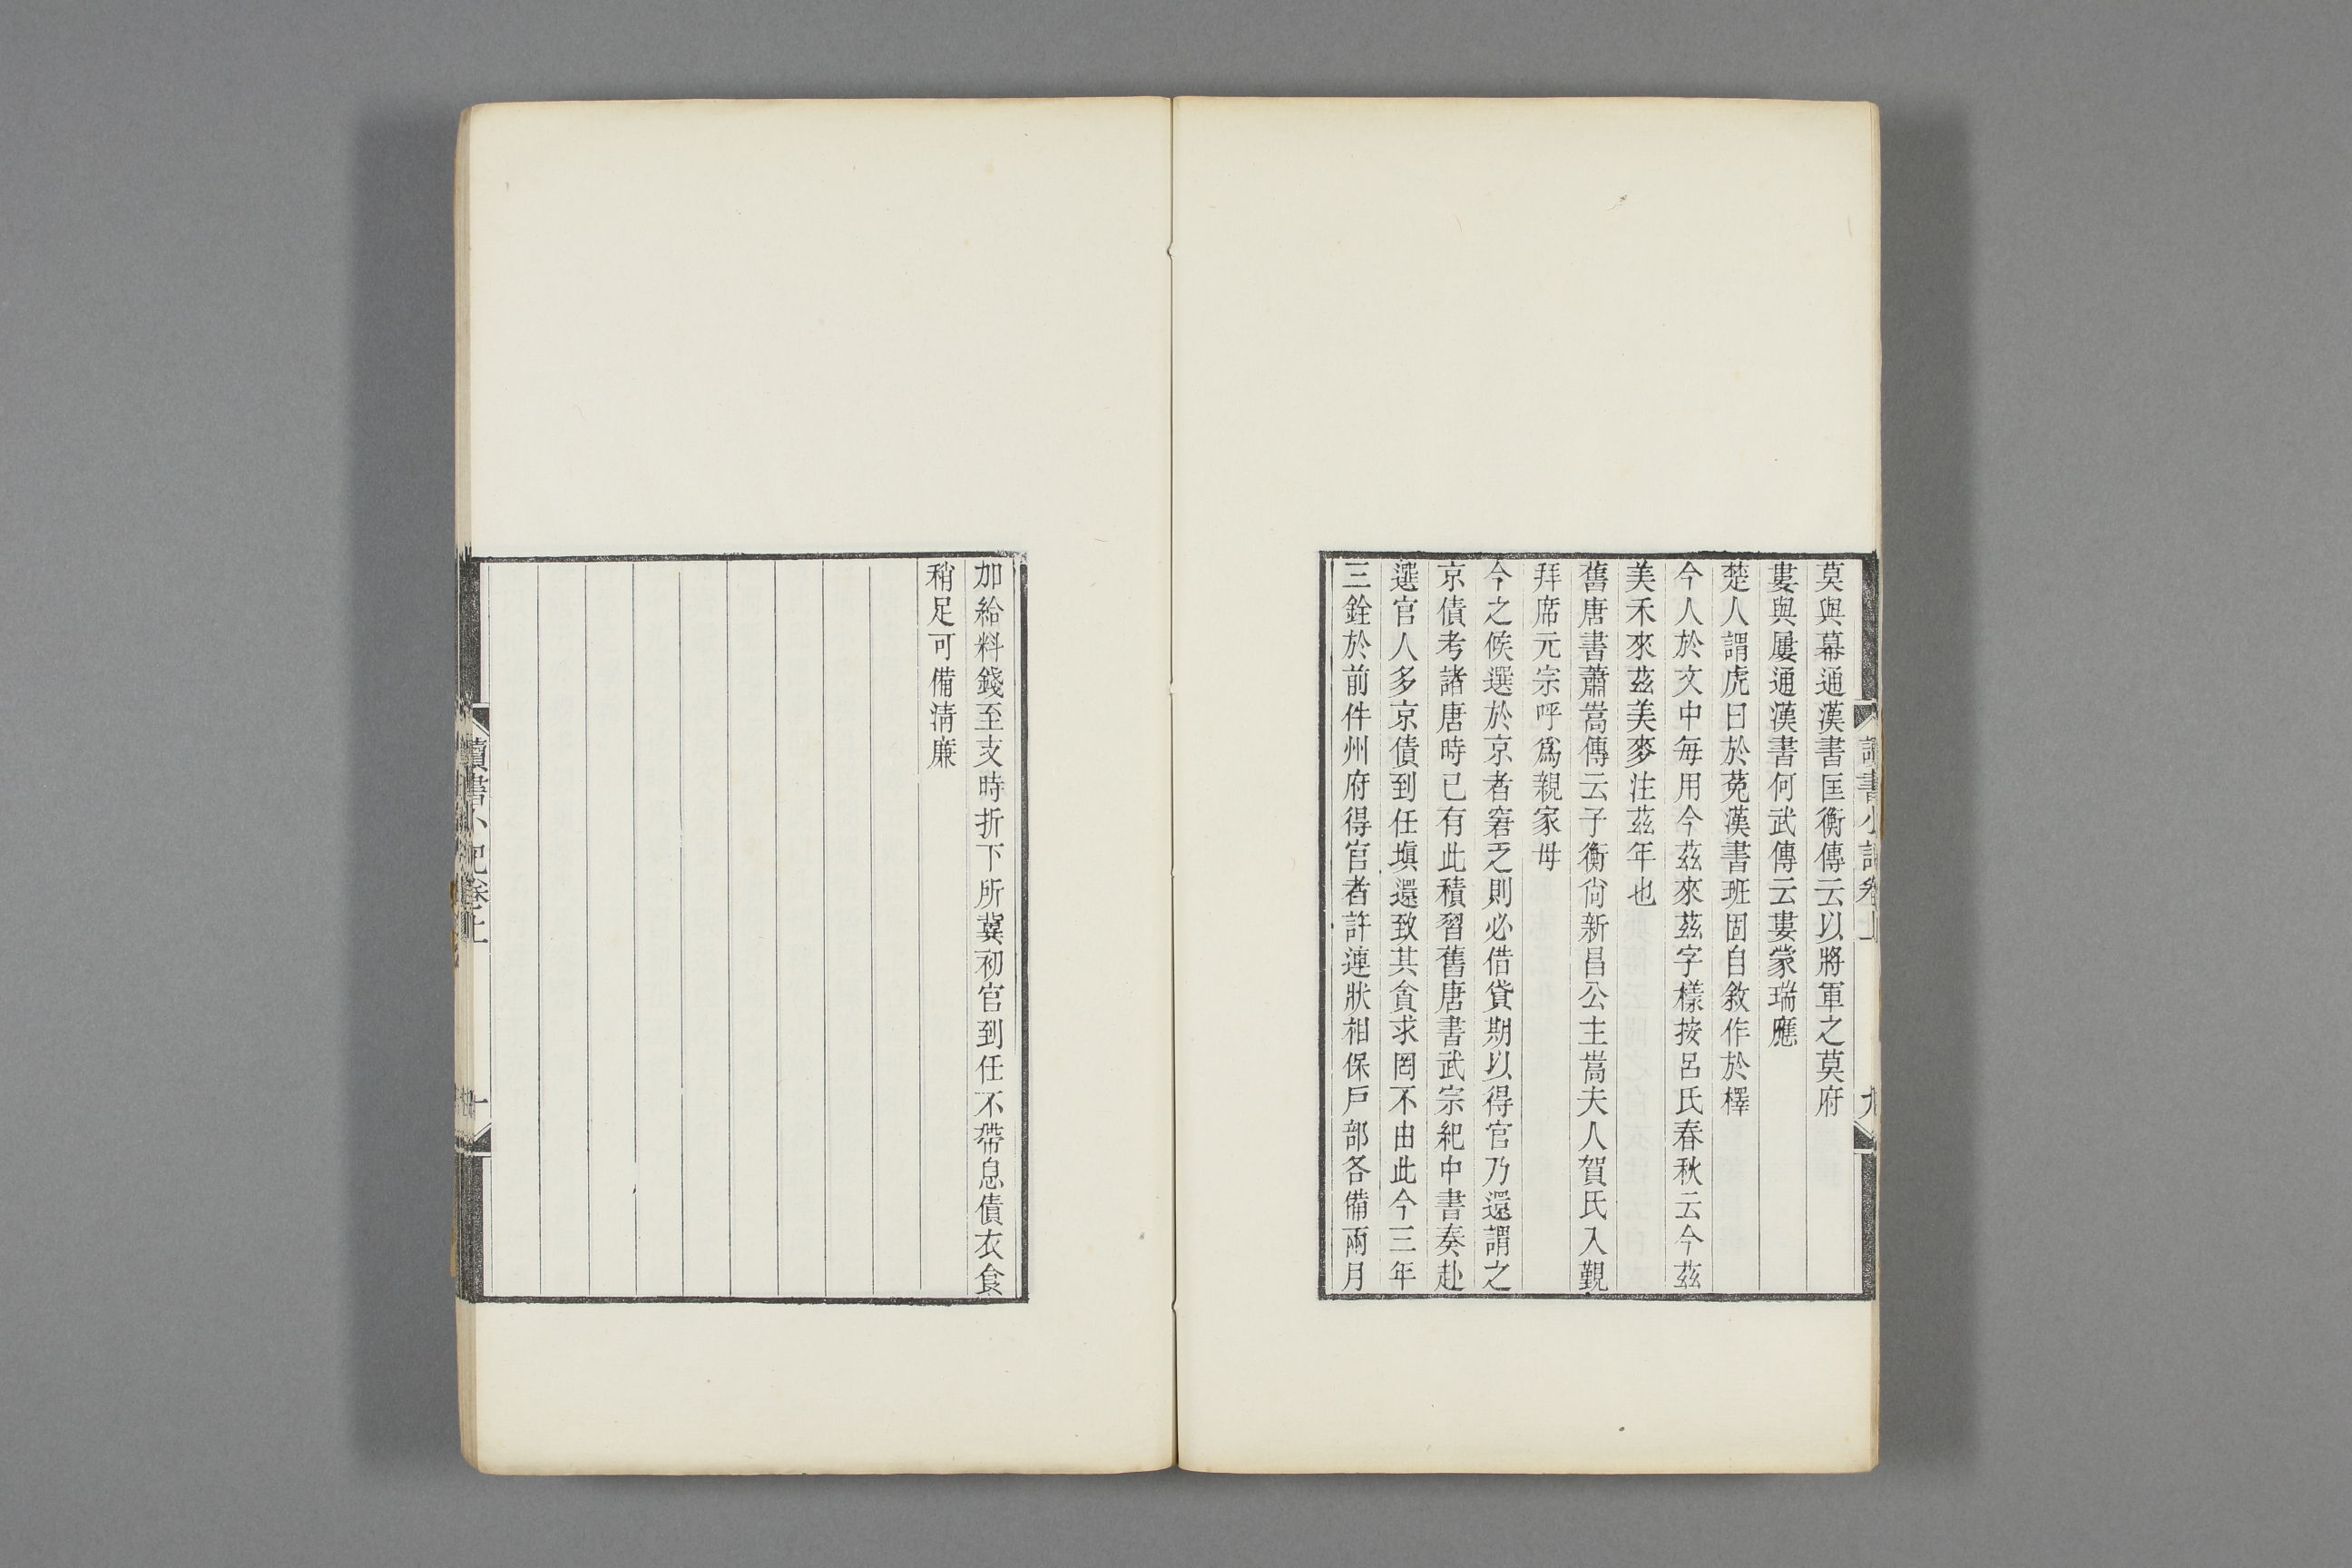 莫與幕通漢書匡衡傳云以將軍之莫府
婁與屢通漢書何武傳云婁蒙瑞應
楚人謂虎曰於菟漢書班固自敘作於檡
今人於文中每用今茲來茲字樣按呂氏春秋云今茲
美禾來茲美麥注茲年也
舊唐書蕭嵩傳云子衡尙新昌公主嵩夫人賀氏入覲
拜席元宗呼爲親家母
今之候選於京者窘乏則必借貸期以得官乃還謂之
京債考諸唐時已有此積習舊唐書武宗紀中書奏赴
選官人多京債到任塡還致其貪求罔不由此今三年
三銓於前件州府得官者許連狀相保戶部各備兩月
加給料錢至支時折下所冀初官到任不帶息債衣食
稍足可備淸廉
讀書小記卷上
十